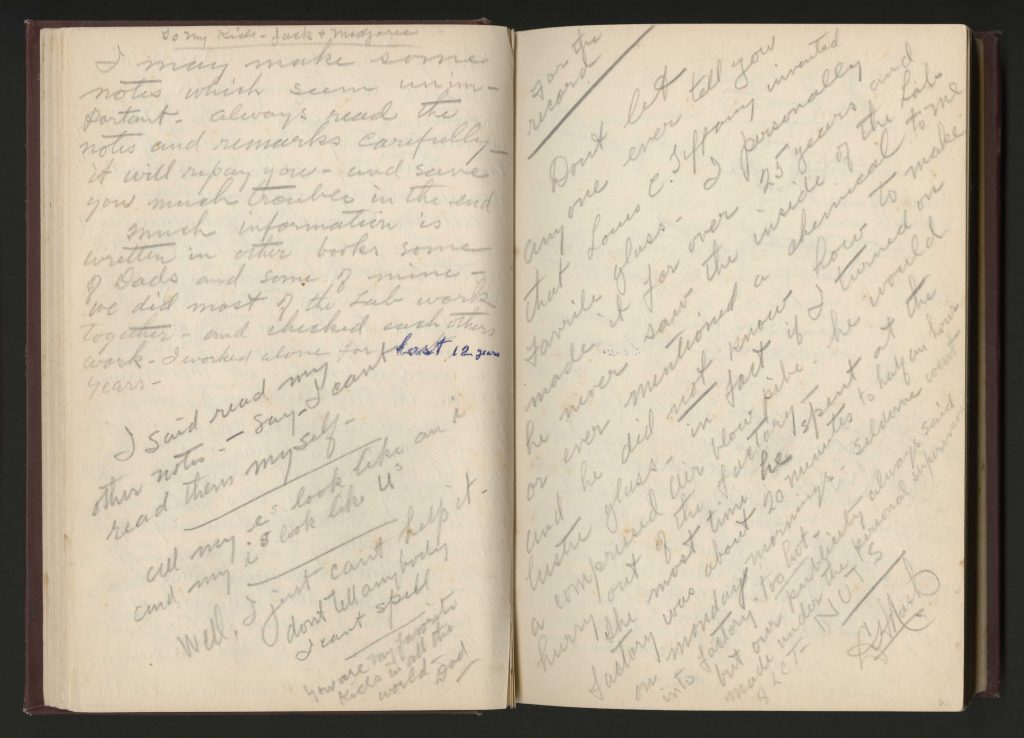 To My Kids - Jack & Marjorie
I may make some
notes which seem unim-
portant - always read the
notes and remarks carefully -
it will repay you - and save
you much trouble in the end
much information is
written in other books some
of Dads and some of mine -
we did most of the Lab work
together - and checked each others
work - I worked alone for last 12 years
years -
I said read my
other notes - say - I can't
read them myself -
all my e's look like an i
and my i s look like u's
Well, I just can't help it.
don't tell anybody
I cant spell
You are my favorite
Kids in all the
world - Dad
For the
record
Dont let
any one ever tell you
that Louis C. Tiffany invented
Favrile glass - I personally
made it for over 25 years and
he never saw the inside of the Lab
or ever mentioned a chemical to me
and he did not know how to make
lustre glass - in fact if I turned on
a compressed air blow pipe he would
hurry out of the factory -
The most time he spent at the
factory was about 20 minutes to half an hour
on monday mornings - seldome went
into factory - too hot -
but our publicity always said
made under the personal supervision
of LCT - NUTS